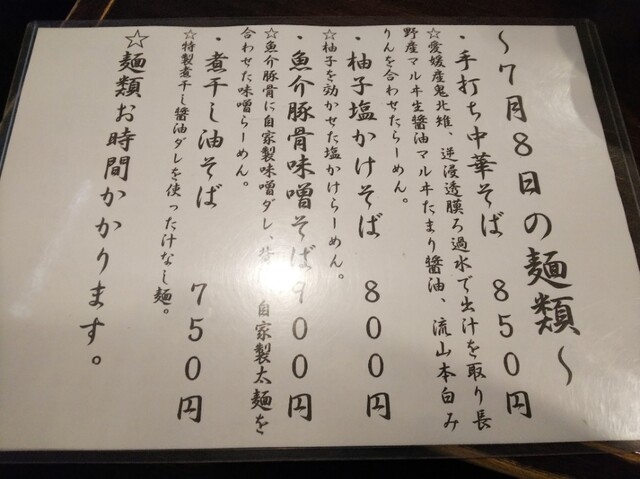 ～7月8日の麺類～
・手打ち中華そば 850円
☆愛媛産鬼北雉、逆浸透膜ろ過水で出汁を取り長
野産マルヰ生醤油マルヰたまり醤油、流山本白み
りんを合わせたらーめん。
・柚子塩かけそば 800円
☆柚子を効かせた塩かけらーめん。
・魚介豚骨味噌そば900円
☆魚介豚骨に自家製味噌ダレ、 自家製太麺を
合わせた味噌らーめん。
・煮干し油そば 750円
☆特製煮干し醤油ダレを使った汁なし麺。
☆麺類お時間かかります。